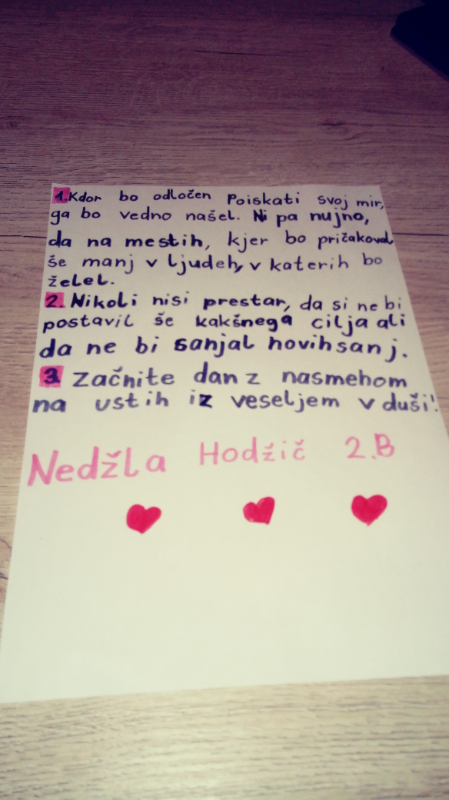 1. Kdor bo odločen Poiskati svoj mir,
ga bo vedno našel. Ni pa nujno,
da na mestih, kjer bo pričakoval,
še manj v ljudeh, v katerih bo
želel.
2. Nikoli nisi prestar, da si ne bi
postavil še kakšnega cilja ali
da ne bi sanjal novih sanj.
3 Začnite dan z nasmehom
na ustih iz veseljem v duši!
Nedžla Hodžič 2.B